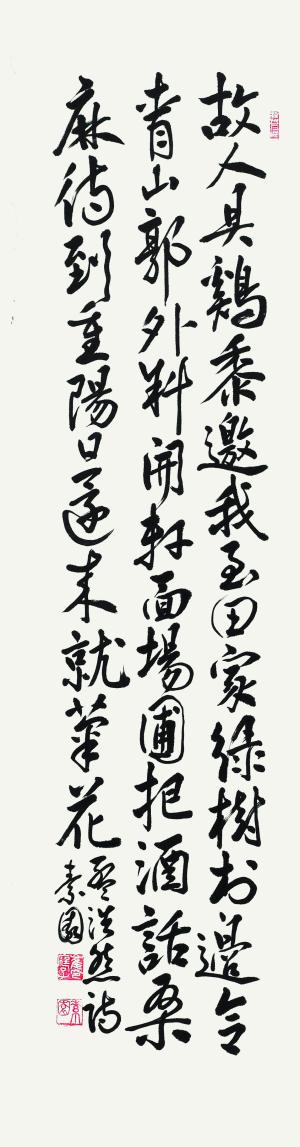 故人具鷄黍邀我至田家綠樹村邊合
青山郭外斜開軒面場圃把酒話桑
麻待到重陽日還來就菊花
孟浩然詩
素園